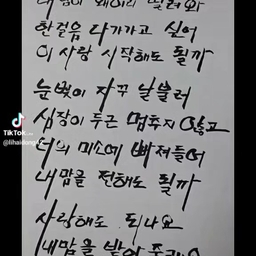 내 맘이 왜이리 떨려와
한걸음 다가가고 싶어
이 사랑 시작해도 될까
눈빛이 자꾸 날 불러
심장이 두근 멈추지 않고
너의 미소에 빠져들어
내맘을 전해도 될까
사랑해도 되나요
내맘을 받아
TikTok